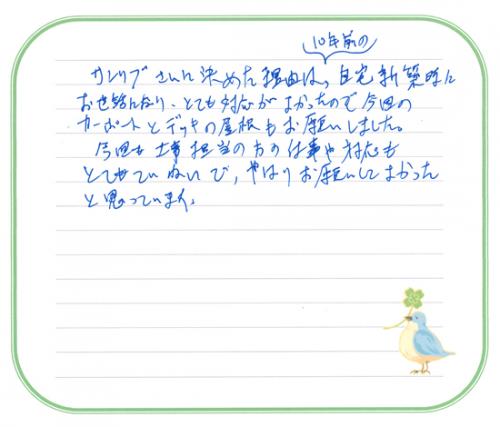 10年前の
ガレリブさんに決めた理由は、自宅新築時に
お世話になり、とても対応がよかったので今回の
カーポートとデッキの屋根もお願いしました。
今回も工事担当の方の仕事や対応も
とてもていねいで、やはりお願いしてよかった
と思っています。